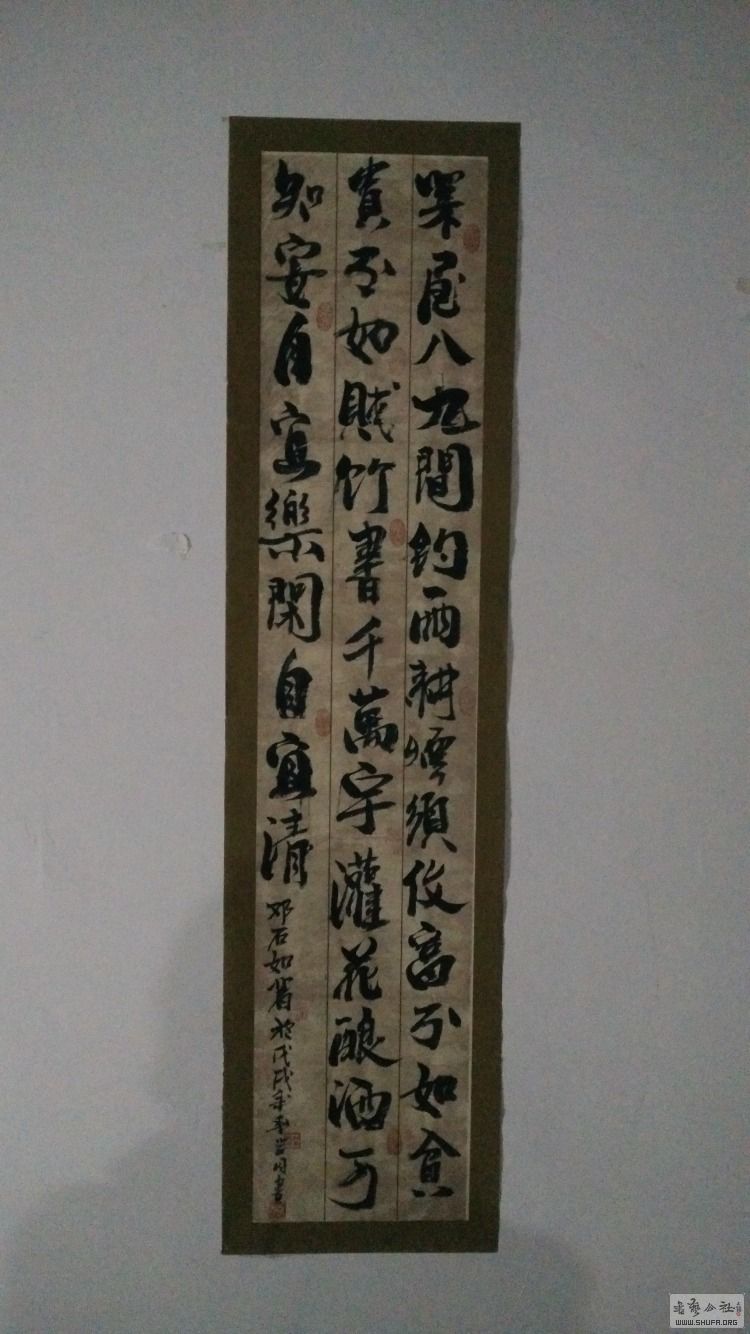 屋八九間釣雨耕煙須伩富不如貧
貴不如賤竹書千萬字灌花釀酒可
知安自宜樂閑自宜清
邓石如 於戊戌年 書
書藝公社
WWW.SHUFA.ORG